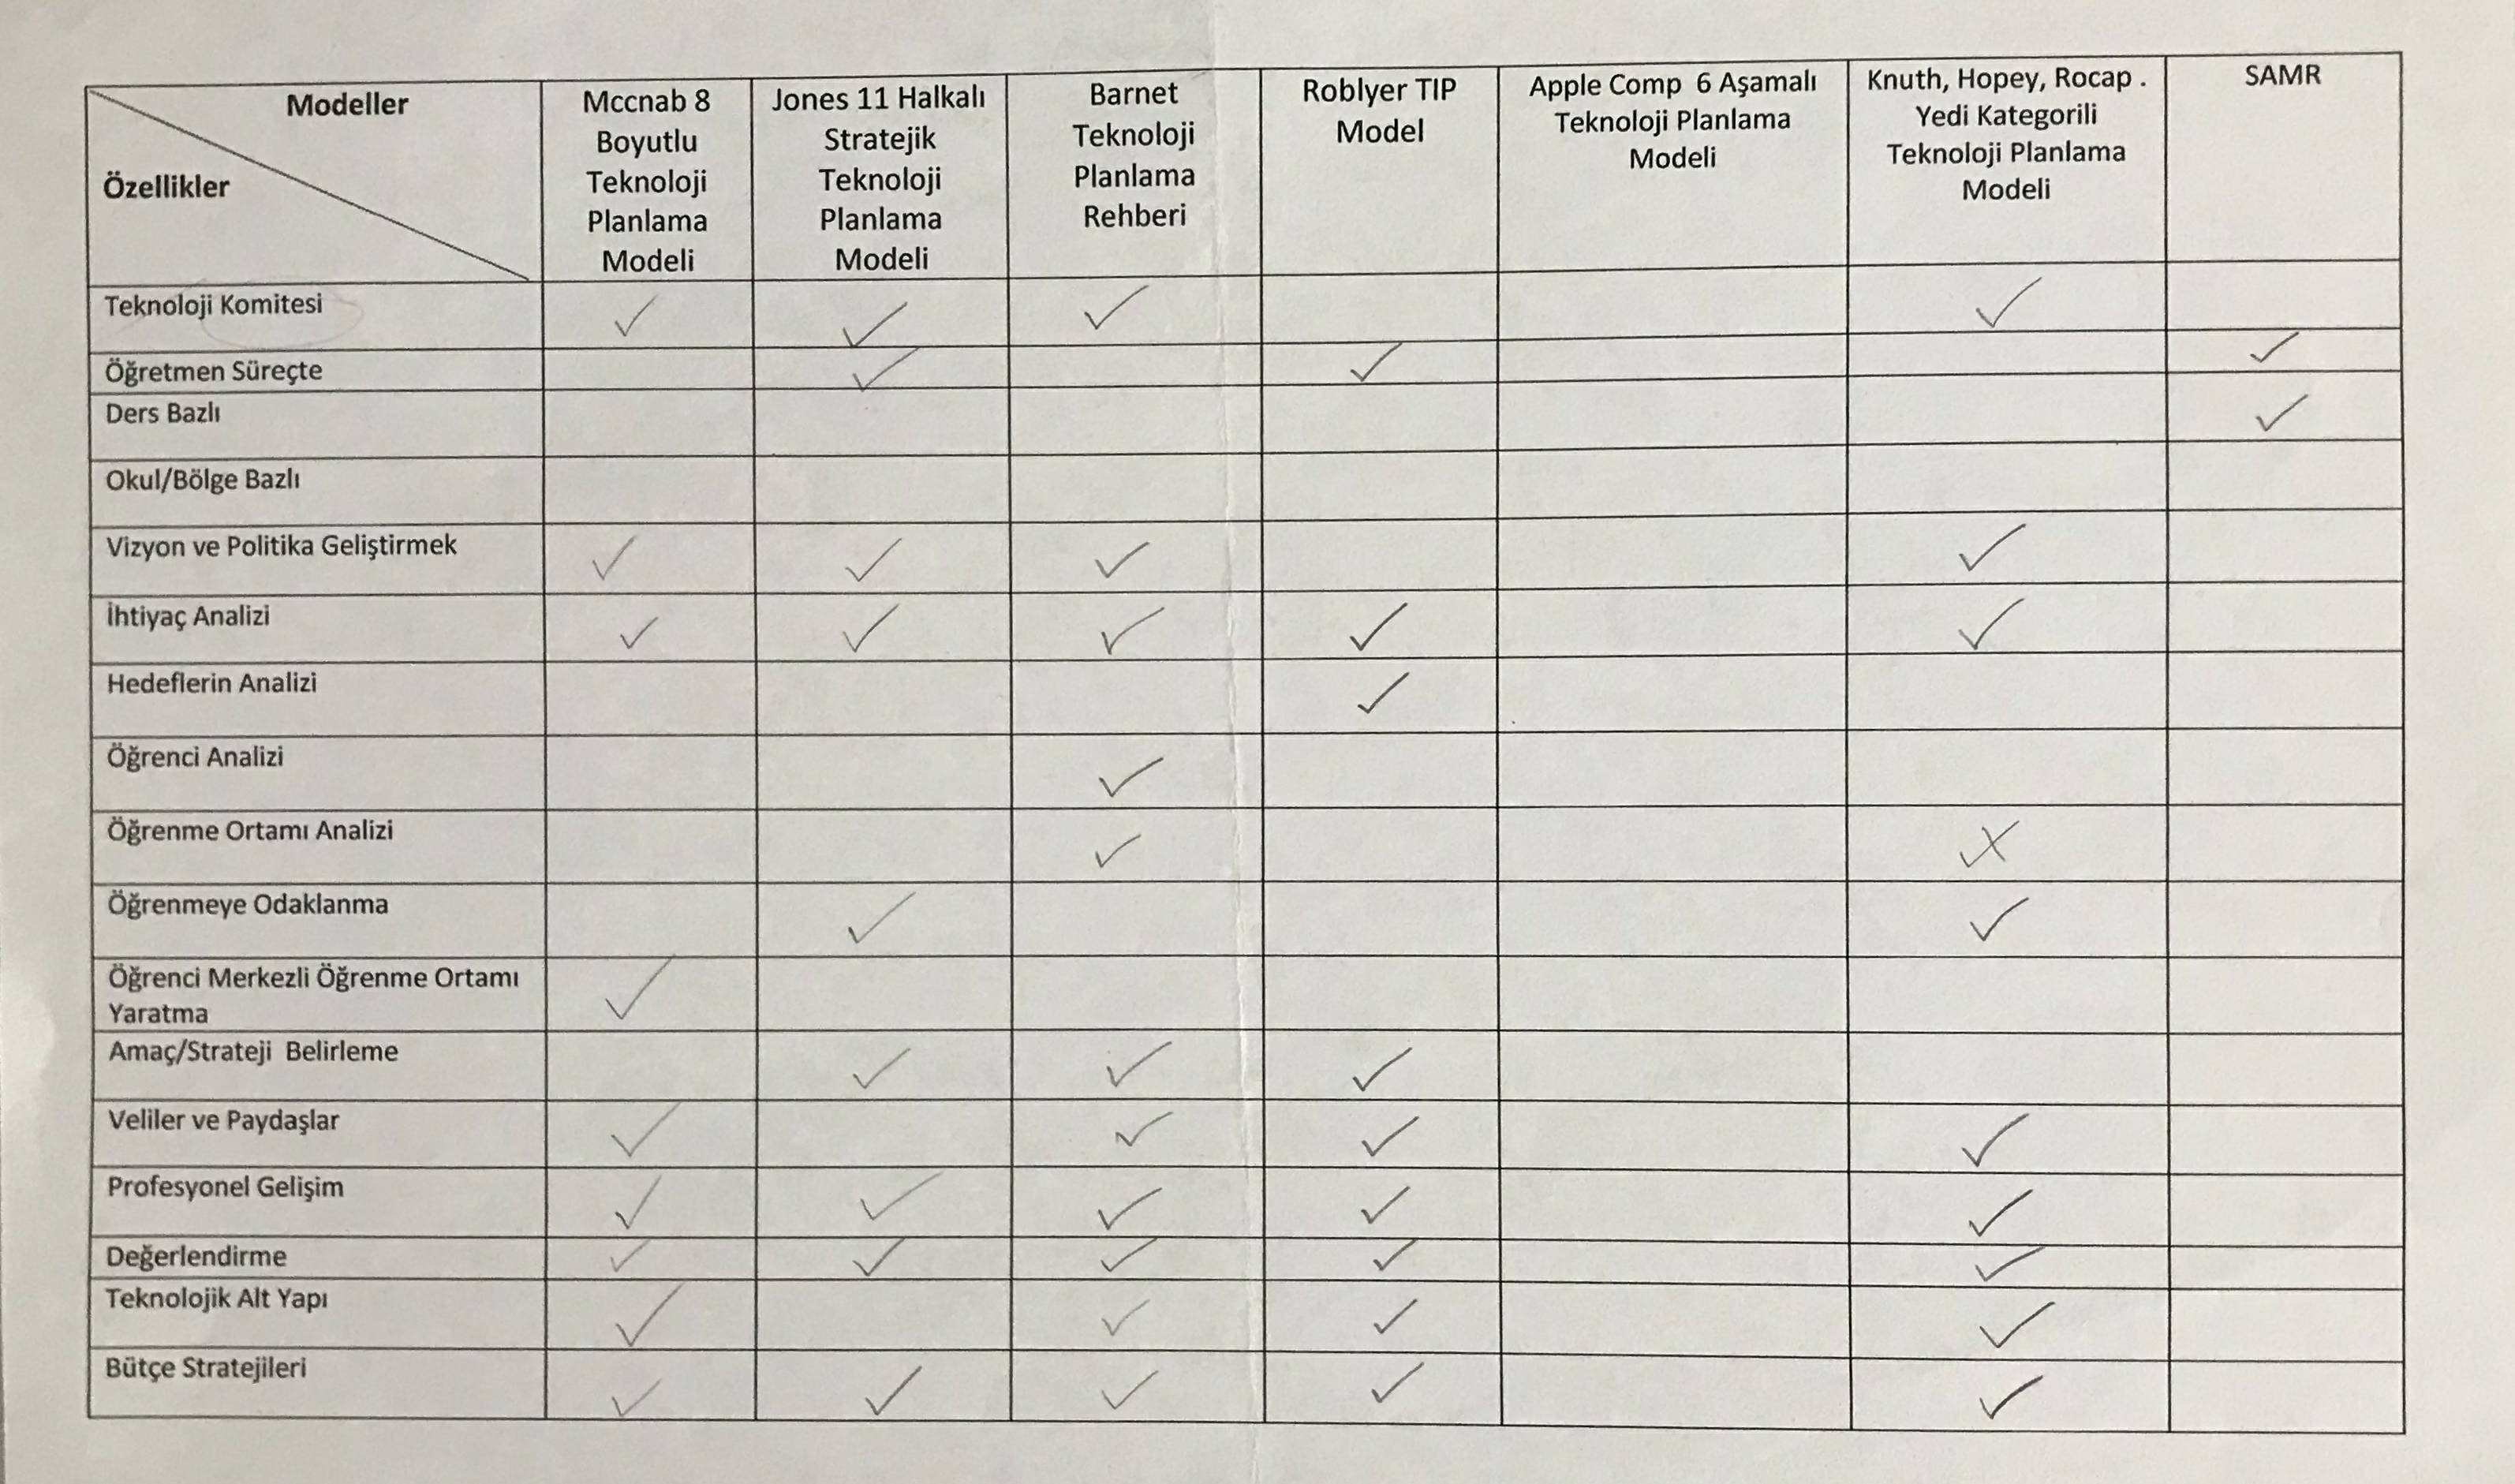 Modeller
Özellikler
Mccnab 8
Boyutlu
Teknoloji
Planlama
Modeli
Jones 11 Halkalı
Stratejik
Teknoloji
Planlama
Modeli
Barnet
Teknoloji
Planlama
Rehberi
Roblyer TIP
Model
Apple Comp 6 Aşamalı
Teknoloji Planlama
Modeli
Knuth, Hopey, Rocap .
Yedi Kategorili
Teknoloji Planlama
Modeli
SAMR
Teknoloji Komitesi ✓ ✓ ✓ ✓
Öğretmen Süreçte ✓ ✓ ✓
Ders Bazlı ✓
Okul/Bölge Bazlı
Vizyon ve Politika Geliştirmek ✓ ✓ ✓ ✓
İhtiyaç Analizi ✓ ✓ ✓ ✓ ✓
Hedeflerin Analizi ✓
Öğrenci Analizi ✓
Öğrenme Ortamı Analizi ✓ X
Öğrenmeye Odaklanma ✓ ✓
Öğrenci Merkezli Öğrenme Ortamı
Yaratma ✓
Amaç/Strateji Belirleme ✓ ✓ ✓
Veliler ve Paydaşlar ✓ ✓ ✓ ✓
Profesyonel Gelişim ✓ ✓ ✓ ✓ ✓
Değerlendirme ✓ ✓ ✓ ✓ ✓
Teknolojik Alt Yapı ✓ ✓ ✓ ✓
Bütçe Stratejileri ✓ ✓ ✓ ✓ ✓